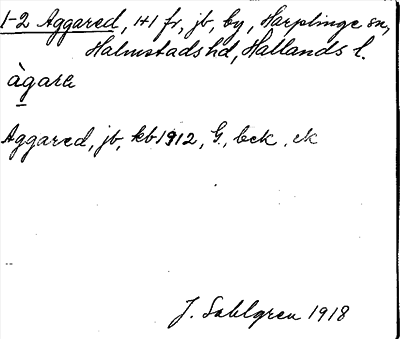 1-2 Aggared, 1+1 fr, jb, by, Harplinge sn,
Halmstads hd, Hallands l.
àgara
Aggared, jb, kb 1912, G., bek, ek
J. Sahlgren 1918